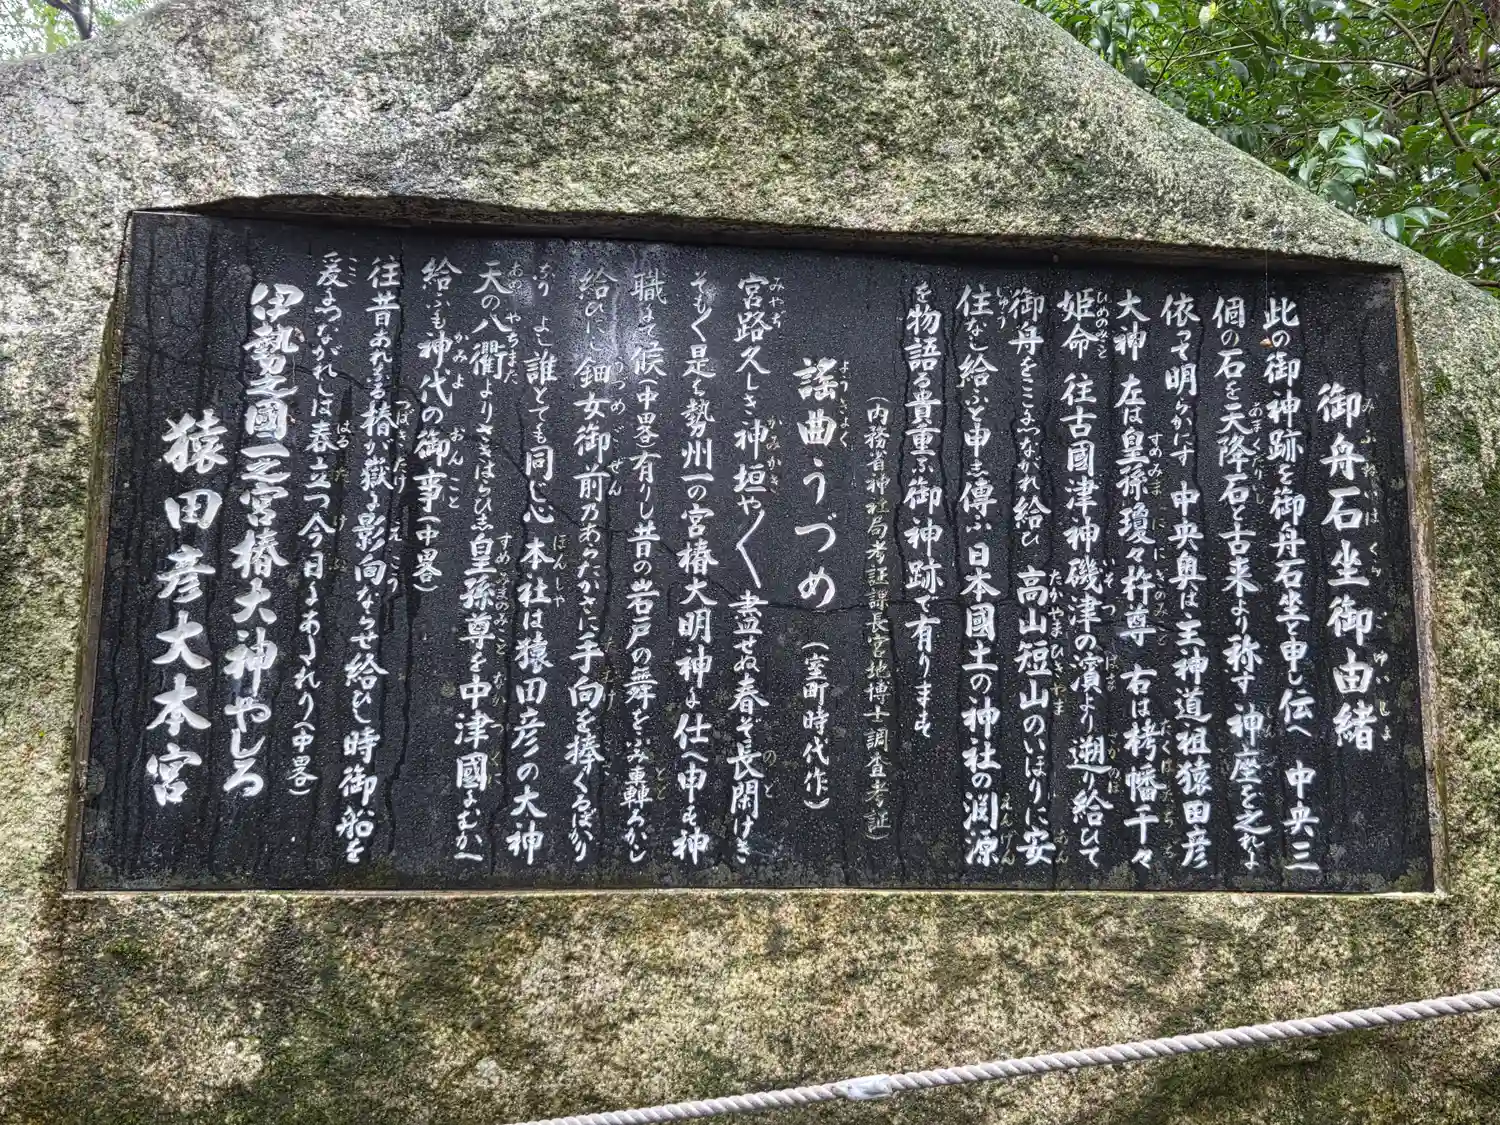 御舟石坐御由緒
此の御神跡を御舟石坐と申し伝へ 中央三
個の石を天降石と古来より称す 神座を之れに
依って明らかにす 中央奥は主神道祖猿田彦
大神 左は皇孫瓊々杵尊 右は栲幡千々
姫命 往古國津神磯津の濱より遡り給ひて
御舟をここにつながれ給ひ 高山短山のいほりに安
住なし給ふと申し傳ふ 日本國土の神社の渕源
を物語る貴重な御神跡で有ります
(内務省神社局考証課長宮地博士調査考証)
謡曲うづめ (室町時代作)
宮路久しき神垣や〳〵 盡せぬ春ぞ長閑けき
そも〳〵是は勢州一の宮椿大明神に仕へ申す神
職にて候(中畧有りし昔の岩戸の舞をふみ轟ろかし
給ひにし鈿女御前乃あらたかさに手向を捧ぐるばかり
なり よし誰とても同じ心 本社は猿田彦の大神
天の八衢よりさきはらひし皇孫尊を中津國にむかへ
給ふも神代の御事(中畧)
往昔あれなる椿が嶽に影向ならせ給ひし時御船を
爰につながれしは春立つ今日にあたれり(中畧)
伊勢之國一之宮椿大神やしろ
猿田彦大本宮